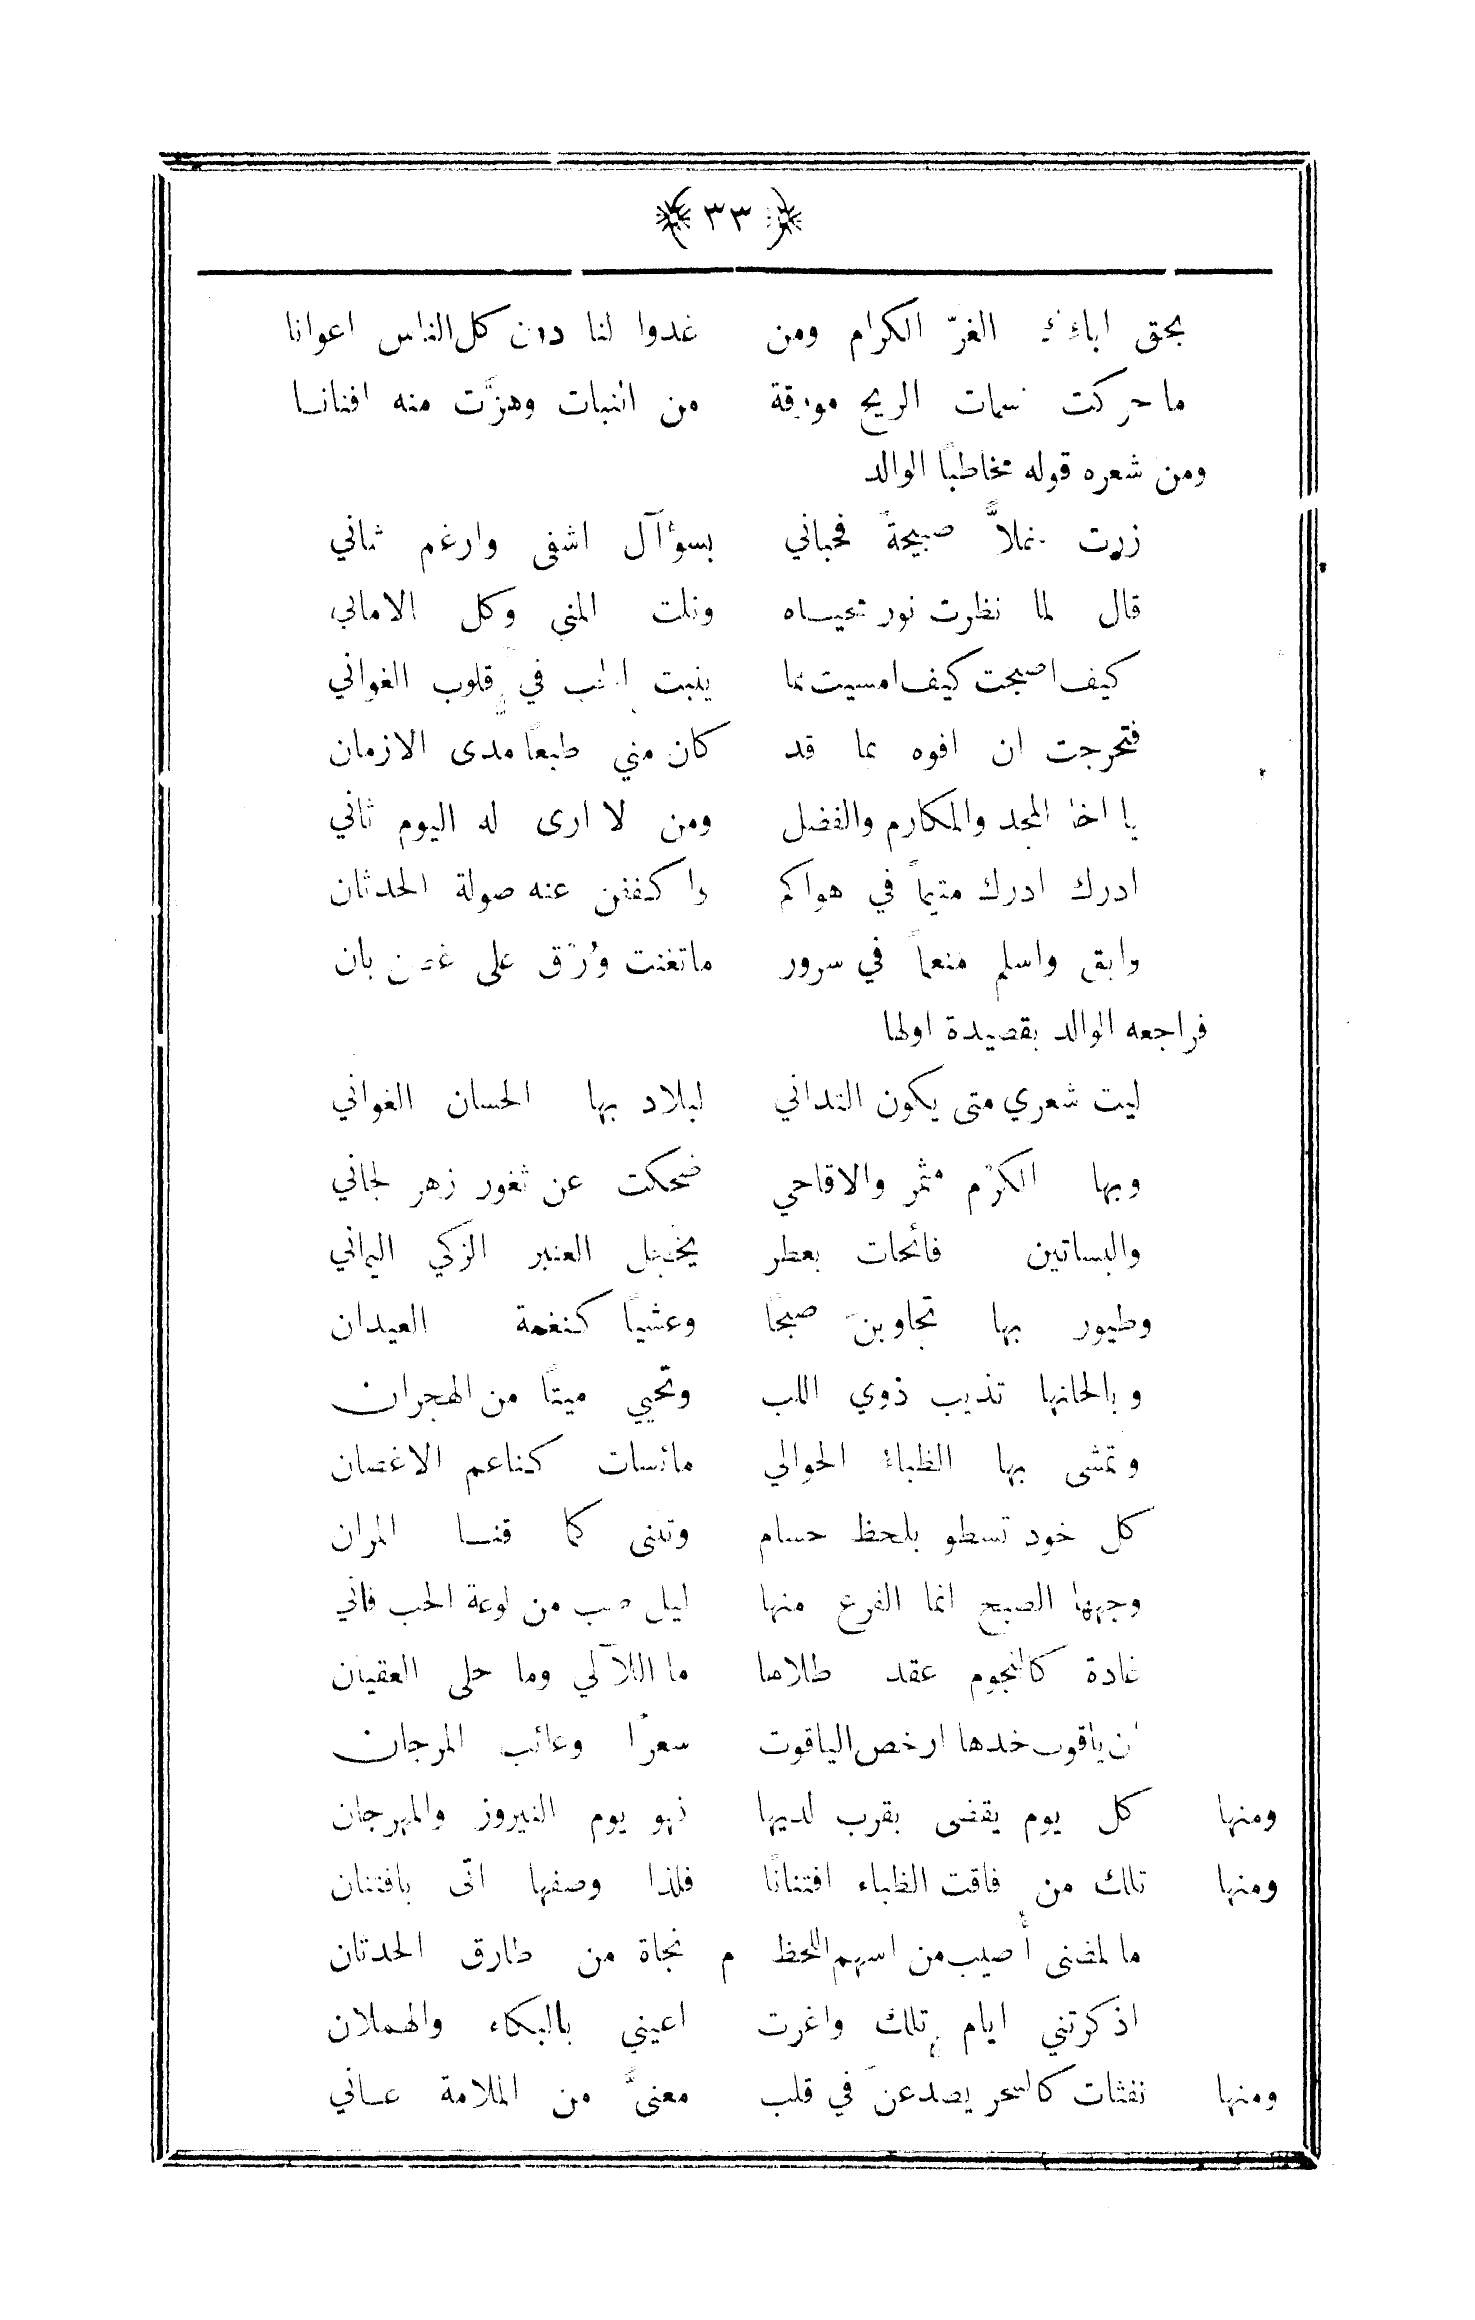 ﴿ ٣٣ ﴾
بحق اباءك الغرّ الكرام ومن غدوا لنا دون كل الناس اعوانا
ما حركت نسمات الريح مورقة من النبات وهزّت منه افنانا
ومن شعره قوله مخاطبًا الوالد
زرت خلاًّ صبيحةً فحباني بسؤآل اشفى وارغم شاني
قال لما نظرت نور محياه ونلت المنى وكل الاماني
كيف اصبحت كيف امسيت مما ينبت الحب في قلوب الغواني
فتحرجت ان افوه بما قد كان مني طبعًا مدى الازمان
يا اخا المجد والمكارم والفضل ومن لا ارى له اليوم ثاني
ادرك ادرك متيمًا في هواكم واكففن عنه صولة الحدثان
وابق واسلم منعمًا في سرور ما تغنت وُرْق على غصن بان
فراجعه الوالد بقصيدة اولها
ليت شعري متى يكون التداني لبلاد بها الحسان الغواني
وبها الكرْم مثمر والاقاحي ضحكت عن ثغور زهر لجاني
والبساتين فائحات بعطر يخجل العنبر الزكي اليماني
وطيور بها تجاوبنَ صبحًا وعشيًا كنغمة العيدان
وبالحانها تذيب ذوي اللب وتحيي ميتًا من الهجران
وتمشى بها الظباء الحوالي مائسات كناعم الاغصان
كل خود تسطو بلحظ حسام وتثنى كما قنا المران
وجهها الصبح انما الفرع منها ليل صب من لوعة الحب فاني
غادة كالنجوم عقد طلاها ما اللآلي وما حلى العقيان
ان ياقوت خدها ارخص الياقوت سعرًا وعائب المرجان
ومنها كل يوم يقضى بقرب لديها فهو يوم النيروز والمهرجان
ومنها تلك من فاقت الظباء افتنانًا فلذا وصفها اتى بافتنان
ما لمضنى أُصيب من اسهم اللحظ م نجاة من طارق الحدثان
اذكرتني ايام تلك واغرت اعيني بالبكاء والهملان
ومنها نفثات كالسحر يصدعنَ في قلب معنىًّ من الملامة عاني